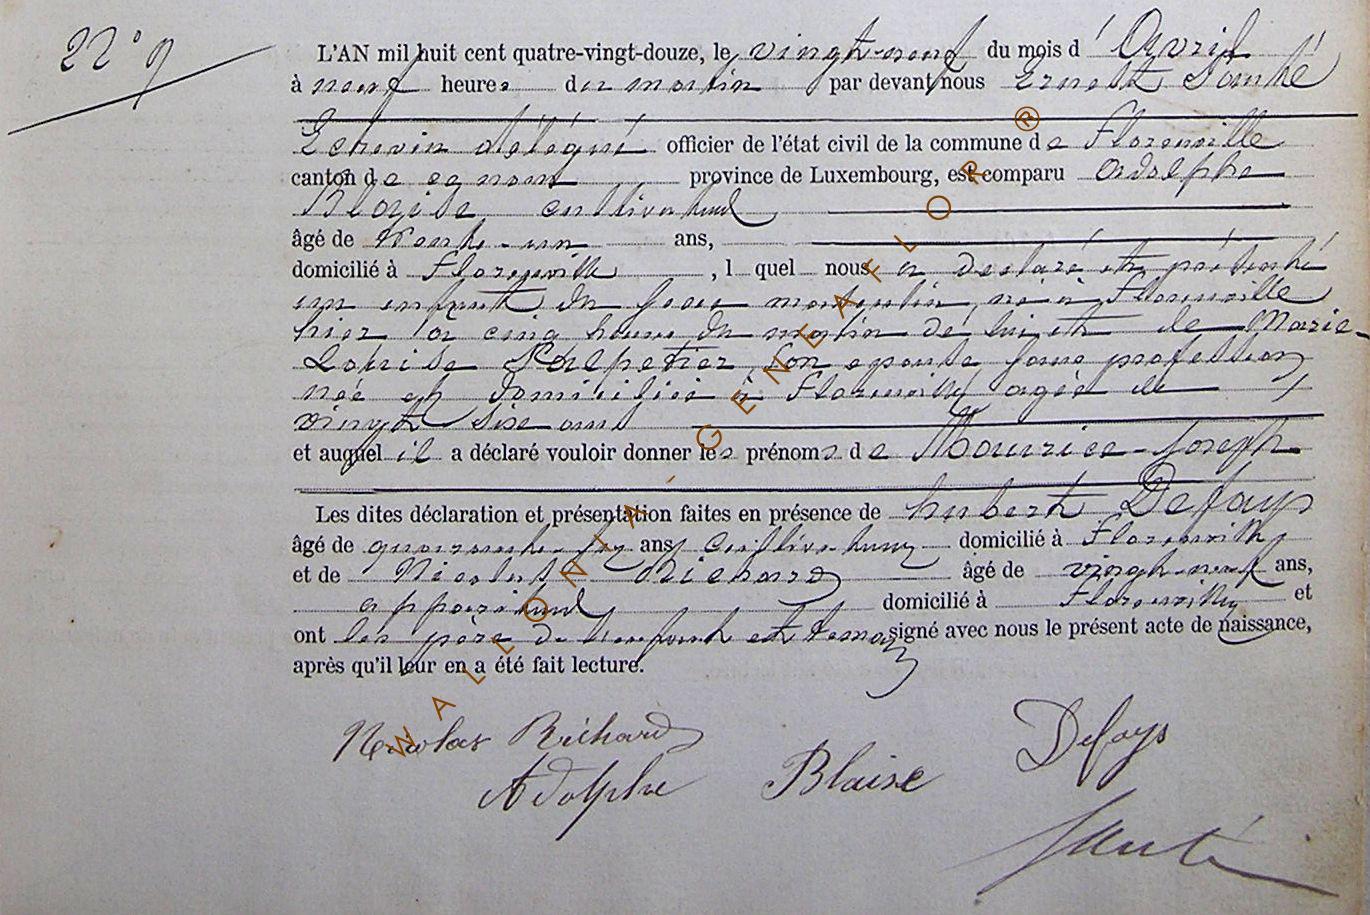 22° 9
L'AN mil huit cent quatre-vingt-douze, le vingt-neuf du mois d'Avril
à neuf heures du matin par devant nous Ernest Santé
Echevin délégué officier de l'état civil de la commune de Florenville
canton de province de Luxembourg, est comparu Adolphe
Blaise, cultivateur
âgé de trente-un ans,
domicilié à Florenville, l quel nous a déclaré et présenté
un enfant du sexe masculin, né à Florenville
hier à cinq heures du matin de lui et de Marie-
Louise Salpetier son épouse sans profession
née et domiciliée à Florenville agée de
vingt six ans
et auquel il a déclaré vouloir donner les prénoms de Maurice-Joseph
Les dites déclaration et présentation faites en présence de hubert Defays
âgé de quarante- ans, cultivateur domicilié à Florenville
et de Nicolas Richard âgé de vingt-neuf ans,
domicilié à Florenville et
ont les père de l'enfant et temoins signé avec nous le présent acte de naissance,
après qu'il leur en a été fait lecture.
Nicolas Richard
Adolphe Blaise
Defays
Santé
WALLONIA-GENEALOR®